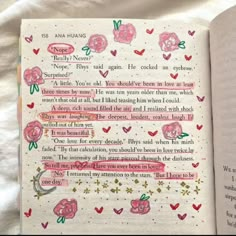 118 ANA HUANG
"Nope."
"Really? Never?"
"Nope," Rhys said again. He cocked an eyebrow.
"Surprised?"
"A little. You should've been in love at least
three times by now." He was ten years older than me, which
wasn't that old at all, but I liked teasing him when I could.
A deep, rich sound filled the air, and I realized with shock
Rhys was laughing. The deepest, loudest, realest laugh I'd
pulled out of him yet.
It was beautiful.
"One love for every decade," Rhys said when his mirth
faded. "By that calculation, you should've been in love twice by
now." The intensity of his stare pierced through the darkness.
"So tell me, princess. Have you ever been in love?"
"No." I returned my attention to the stars. "But I hope to be
one day."